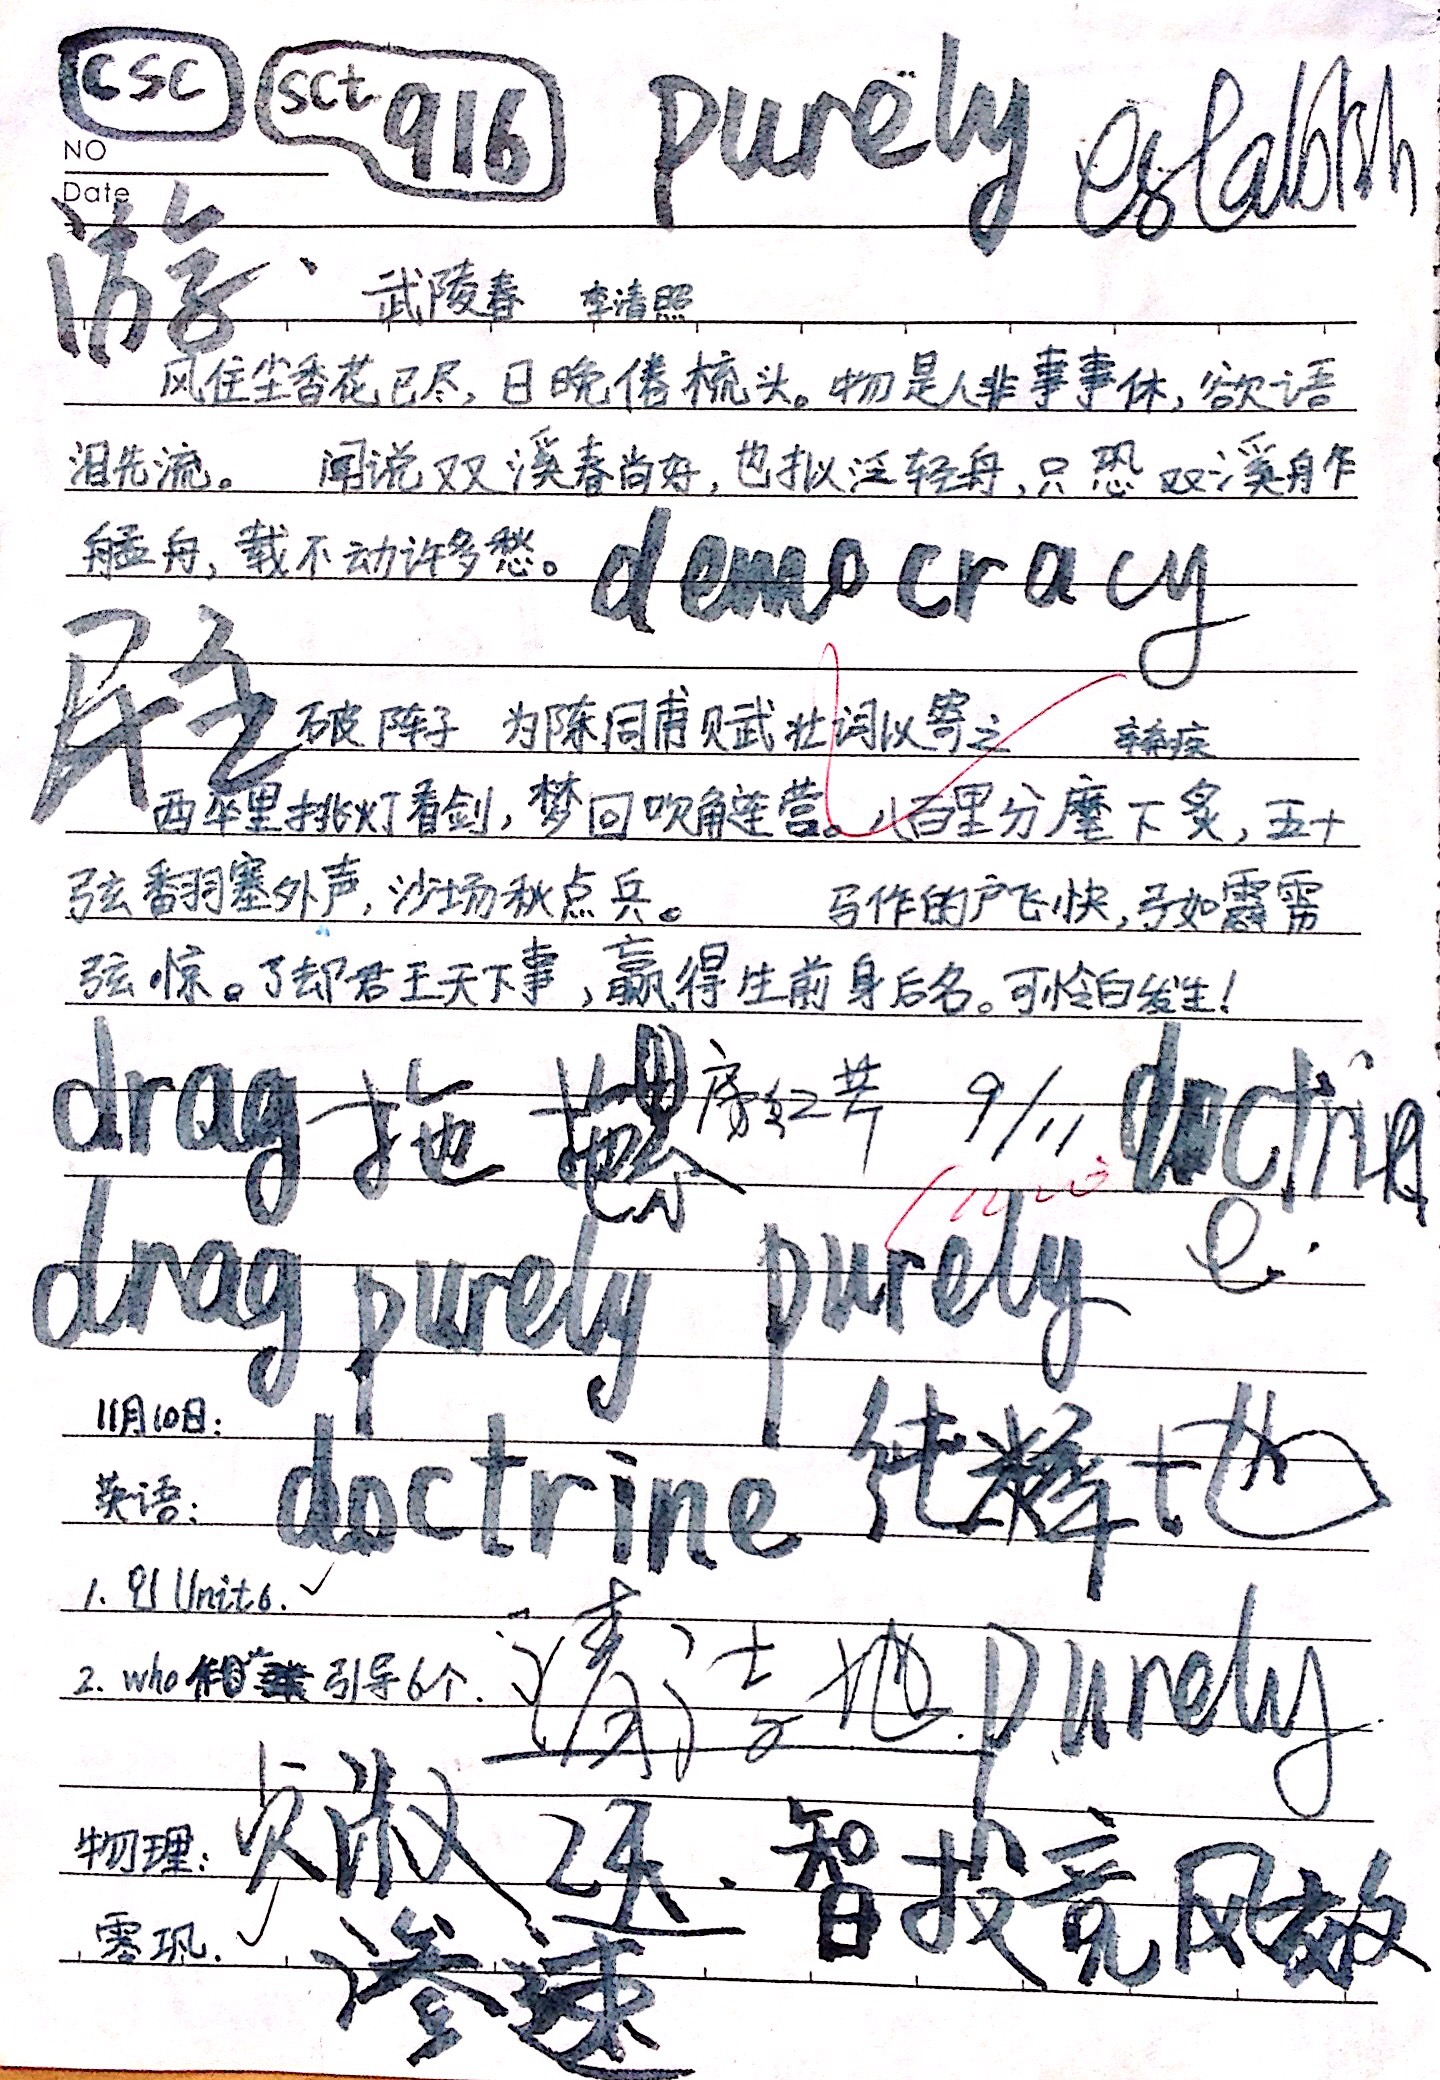 csc sct 916 purely establish
NO
Date
游
武陵春 李清照
风住尘香花已尽，日晚倦梳头。物是人非事事休，欲语
泪先流。 闻说双溪春尚好，也拟泛轻舟，只恐双溪舴
艋舟，载不动许多愁。 democracy
民主
破阵子 为陈同甫赋壮词以寄之
八百里分麾下炙，五十
弦翻塞外声，沙场秋点兵。 马作的卢飞快，弓如霹雳
弦惊。了却君王天下事，赢得生前身后名。可怜白发生！
drag 拖 9/11 doctrine
drag purely purely
11月10日：
英语： doctrine 纯粹地
1. 四 Unit6. ✓
2. who 引导6个. 清洁地. purely
物理： 智投竞风效
零巩. ✓ 渗速